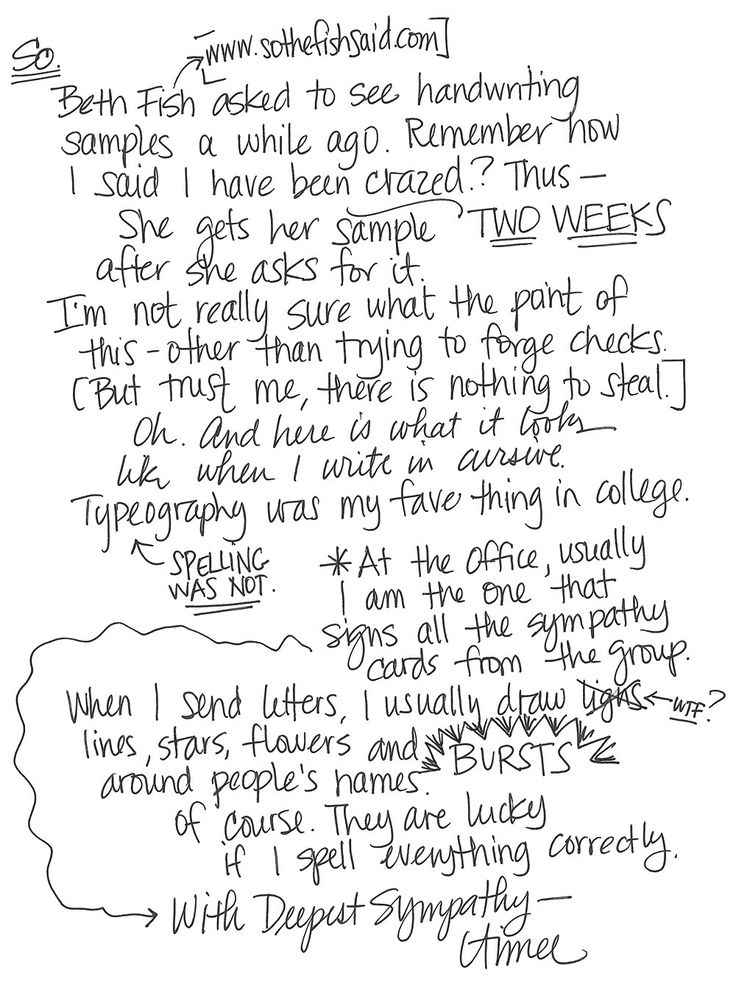 [www.sothefishsaid.com]
So.
Beth Fish asked to see handwriting
samples a while ago. Remember how
I said I have been crazed? Thus —
She gets her sample TWO WEEKS
after she asks for it.
I'm not really sure what the point of
this - other than trying to forge checks.
[But trust me, there is nothing to steal.]
Oh. And here is what it looks
like when I write in cursive.
Typeography was my fave thing in college.
SPELLING
WAS NOT.
*At the office, usually
I am the one that
signs all the sympathy
cards from the group.
When I send letters, I usually draw ligns ← WTF?
lines, stars, flowers and BURSTS
around people's names.
of course. They are lucky
if I spell everything correctly.
With Deepest Sympathy —
Aimee